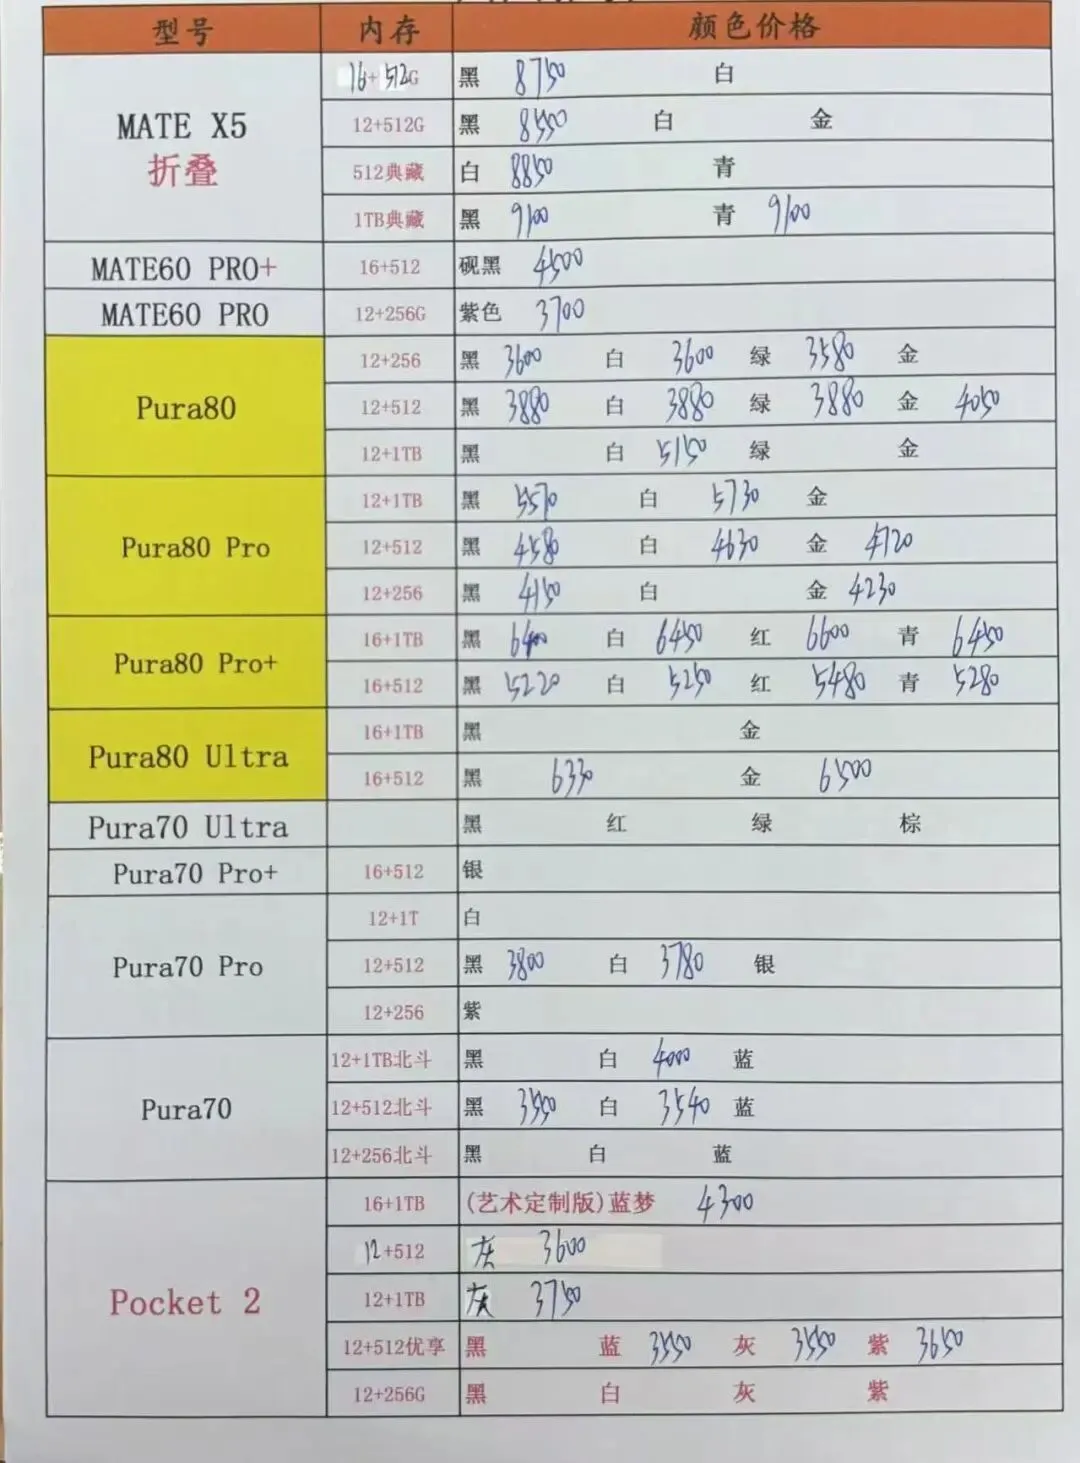 型号 内存 颜色价格
MATE X5 折叠 16+512G 黑 8750 白
12+512G 黑 8550 白 金
512典藏 白 8850 青
1TB典藏 黑 9100 青 9100
MATE60 PRO+ 16+512 砚黑 4500
MATE60 PRO 12+256G 紫色 3700
Pura80 12+256 黑 3600 白 3600 绿 3580 金
12+512 黑 3880 白 3880 绿 3880 金 4050
12+1TB 黑 白 5150 绿 金
Pura80 Pro 12+1TB 黑 5570 白 5730 金
12+512 黑 4580 白 4630 金 4720
12+256 黑 4150 白 金 4230
Pura80 Pro+ 16+1TB 黑 6400 白 6450 红 6600 青 6450
16+512 黑 5220 白 5250 红 5480 青 5280
Pura80 Ultra 16+1TB 黑 金
16+512 黑 6330 金 6500
Pura70 Ultra 黑 红 绿 棕
Pura70 Pro+ 16+512 银
Pura70 Pro 12+1T 白
12+512 黑 3800 白 3780 银
12+256 紫
Pura70 12+1TB北斗 黑 白 4000 蓝
12+512北斗 黑 3550 白 3540 蓝
12+256北斗 黑 白 蓝
Pocket 2 16+1TB (艺术定制版)蓝梦 4300
12+512 灰 3600
12+1TB 灰 3750
12+512优享 黑 蓝 3550 灰 3550 紫 3650
12+256G 黑 白 灰 紫